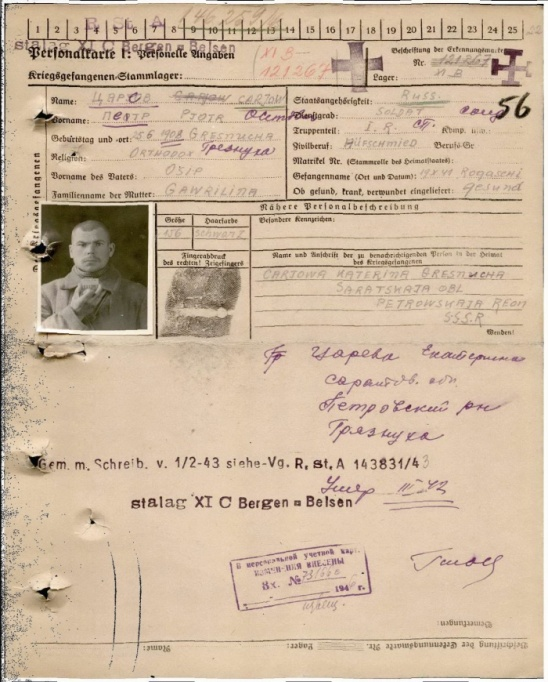 R. St. A
1 2 3 4 5 6 7 8 9 10 11 12 13 14 15 16 17 18 19 20 21 22 23 24 25
stalag XI C Bergen = Belsen
Personalkarte I: Personelle Angaben
Kriegsgefangenen-Stammlager:
XI B—
121267
Beschriftung der Erkennungsmarke
Nr. 121267
Lager: XI B
Name: ЦАРЕВ CARJOW
Vorname: ПЕТР PJOTR
Geburtstag und -ort: 15.6.1908 GRESNUCHA
Грязнуха
Religion: ORTHODOX
Vorname des Vaters: OSIP
Familienname der Mutter: GAWRILINA
Staatsangehörigkeit: RUSS.
Dienstgrad: SOLDAT солд
56
Truppenteil: I. R. сп. Komp. usw.:
Zivilberuf: HUFSCHMIED Berufs-Gr.
Matrikel Nr. (Stammrolle des Heimatstaates):
Gefangennahme (Ort und Datum):
Ob gesund, krank, verwundet eingeliefert: gesund
Nähere Personalbeschreibung
Größe Haarfarbe Besondere Kennzeichen:
156 SCHWARZ
Fingerabdruck
des rechten! Zeigefingers
Name und Anschrift der zu benachrichtigenden Person in der Heimat
des Kriegsgefangenen
CARJOWA KATERINA GRESNUCHA
SARATSKAJA OBL
PETROWSKAJA REON
SSSR
Wenden!
Царева Екатерина
саратов. обл.
Петровский рн
Грязнуха
Gem. m. Schreib. v. 1/2-43 siehe-Vg. R. St. A 143831/43
Умер III 42
stalag XI C Bergen = Belsen
В персональной учетной карт.
ИЗМЕНЕНИЯ ВНЕСЕНЫ
Вх. №
194
Bemerkungen:
Beschriftung der Erkennungsmarke Nr. Lager: Name: